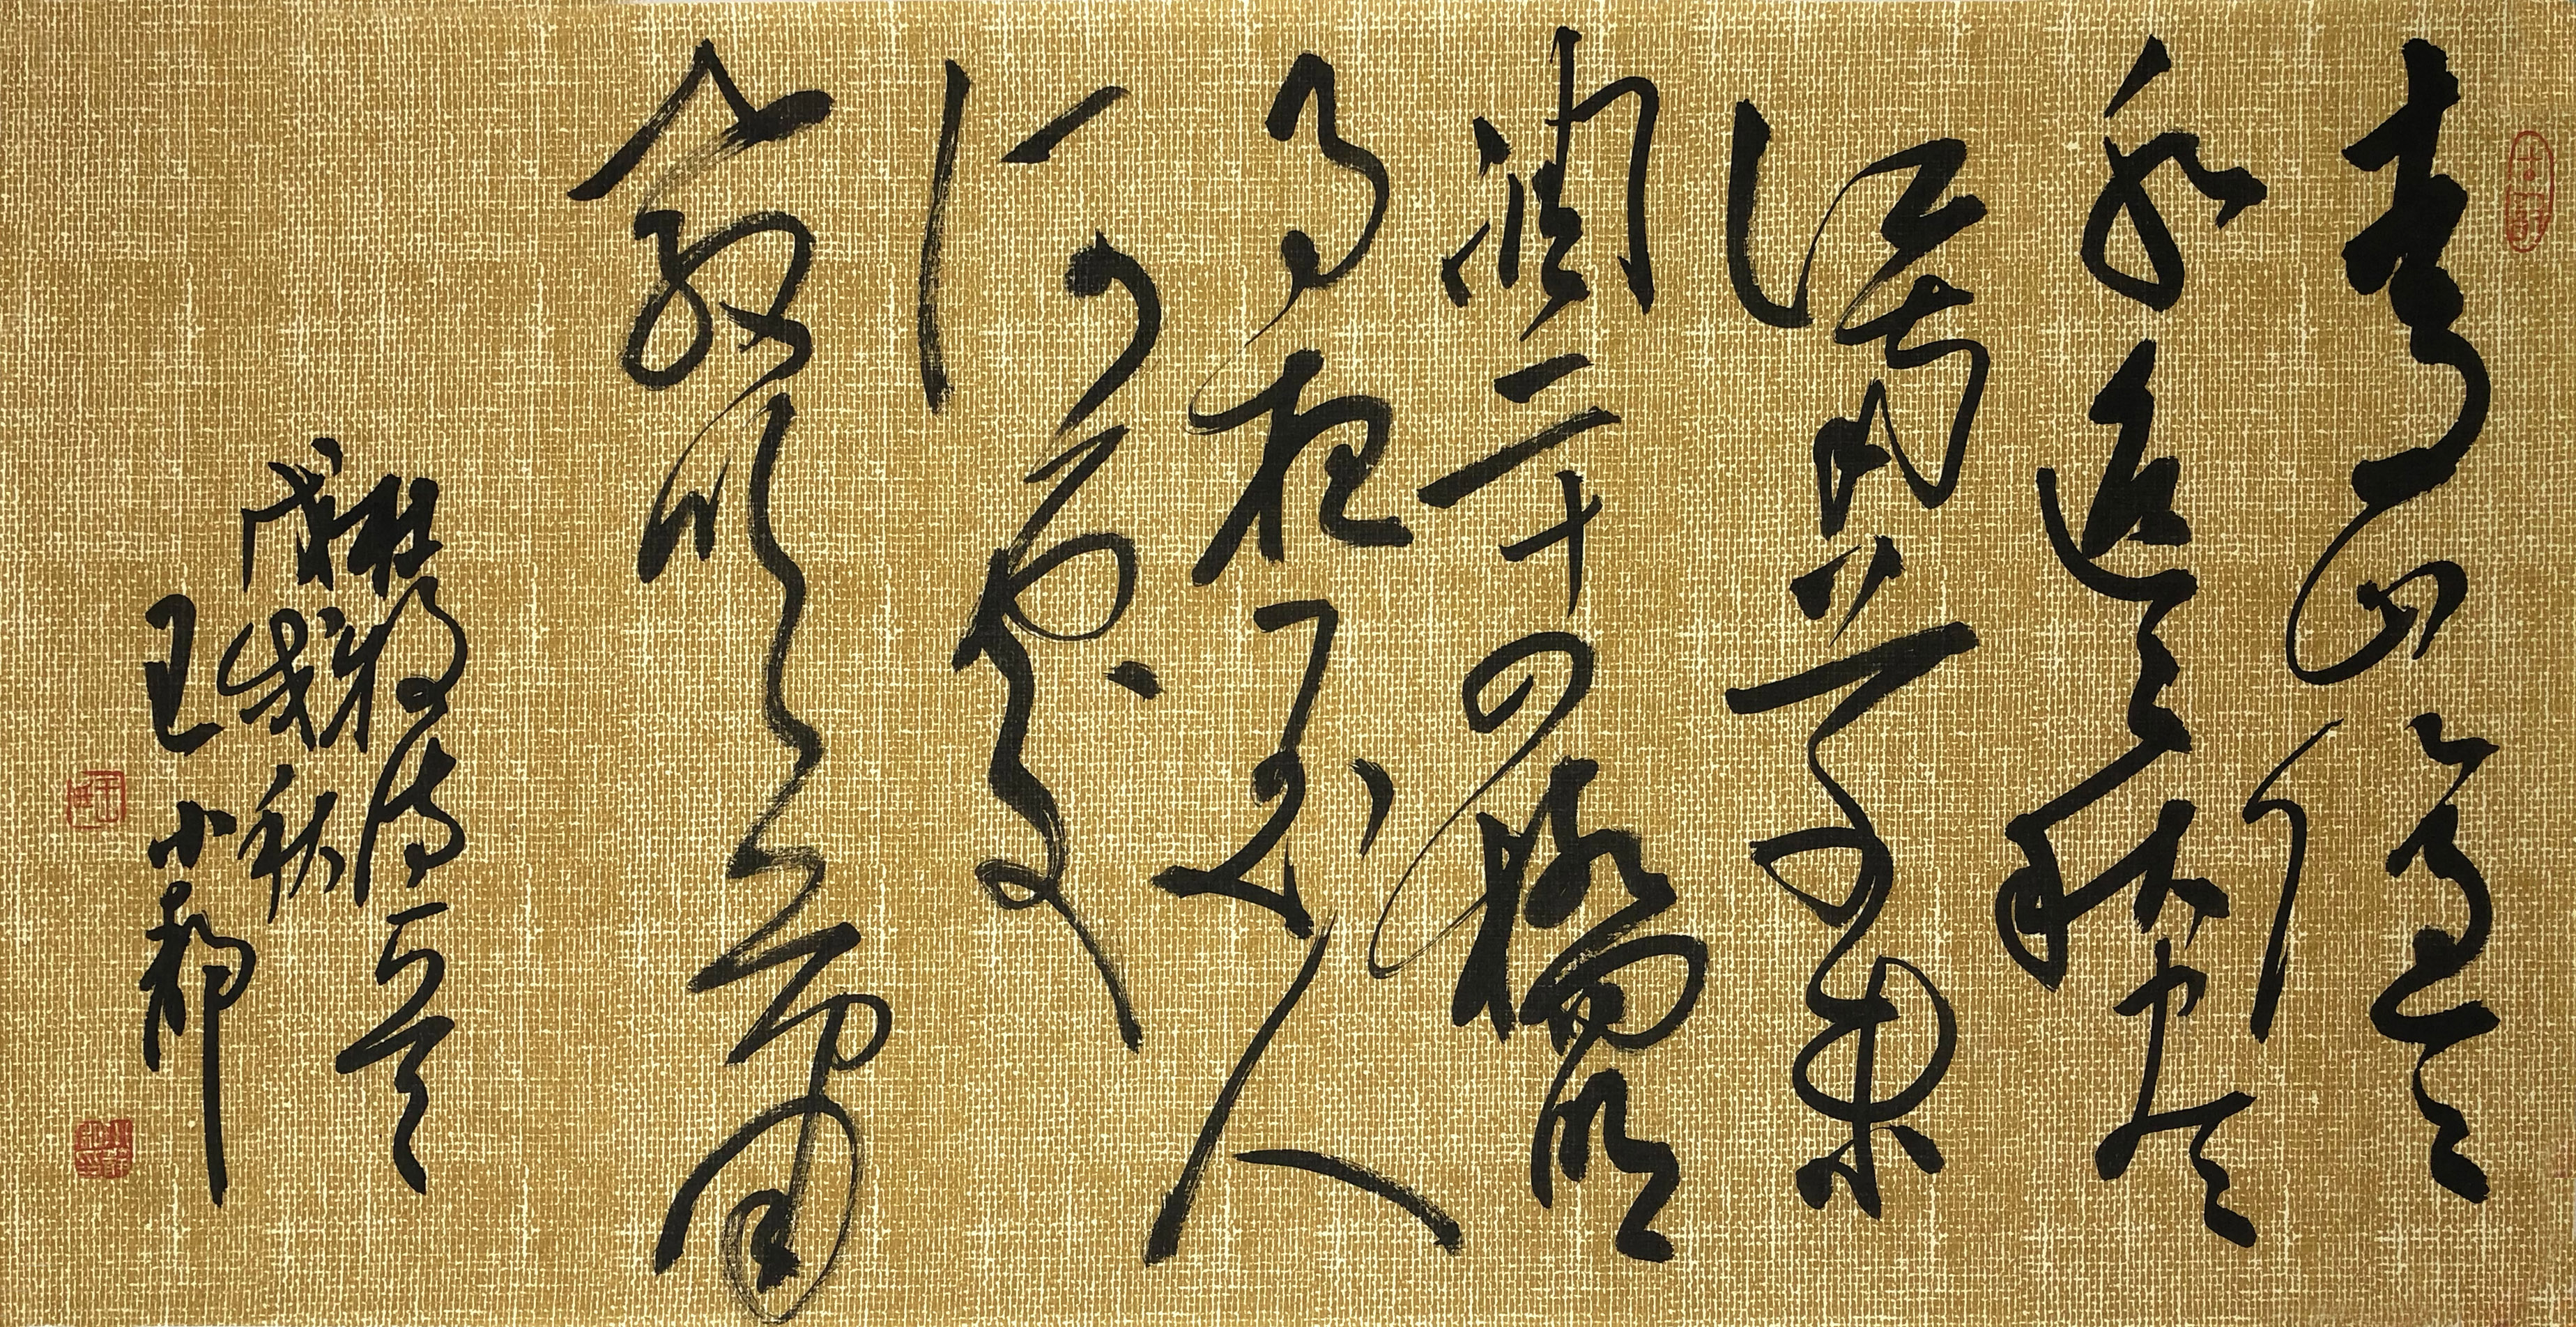 青山隱隱
水迢迢秋尽
江南草未
凋二十四橋明
月夜玉人
何處
教吹簫
杜牧诗一首
戊戌秋
王小